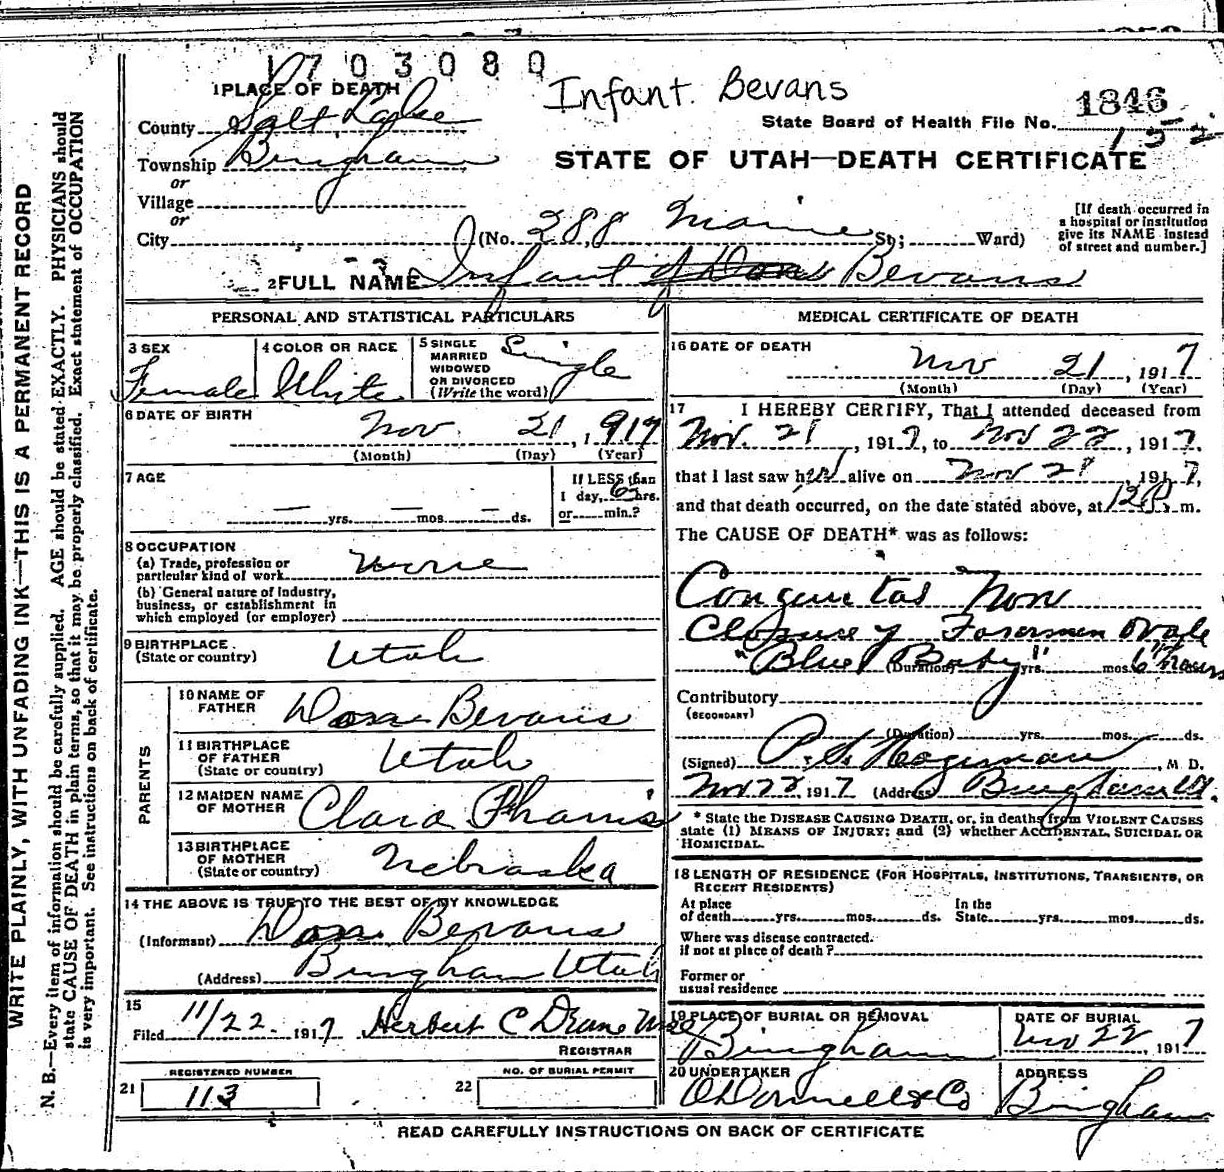 1703080
Infant Bevans
1 PLACE OF DEATH
1846
County Salt Lake
State Board of Health File No. 152
Township Bingham
STATE OF UTAH—DEATH CERTIFICATE
or
Village
or
City (No. 288 Maine St; Ward)
[If death occurred in
a hospital or institution
give its NAME instead
of street and number.]
2 FULL NAME Infant of Bevans
PERSONAL AND STATISTICAL PARTICULARS
3 SEX
Female
4 COLOR OR RACE
White
5 SINGLE
MARRIED
WIDOWED
OR DIVORCED
(Write the word)
Single
6 DATE OF BIRTH
Nov. 21, 1917
(Month) (Day) (Year)
7 AGE
— yrs. — mos. — ds.
If LESS than
1 day, 6 hrs.
or min.?
8 OCCUPATION
(a) Trade, profession or
particular kind of work none
(b) General nature of Industry,
business, or establishment in
which employed (or employer)
9 BIRTHPLACE
(State or country) Utah
PARENTS
10 NAME OF
FATHER Bevans
11 BIRTHPLACE
OF FATHER
(State or country) Utah
12 MAIDEN NAME
OF MOTHER Clara
13 BIRTHPLACE
OF MOTHER
(State or country) Nebraska
14 THE ABOVE IS TRUE TO THE BEST OF MY KNOWLEDGE
(Informant) Bevans
(Address) Bingham Utah
15
Filed 11/22 1917 Herbert C
REGISTRAR
21
REGISTERED NUMBER
113
22
NO. OF BURIAL PERMIT
MEDICAL CERTIFICATE OF DEATH
16 DATE OF DEATH
Nov 21, 1917
(Month) (Day) (Year)
17 I HEREBY CERTIFY, That I attended deceased from
Nov. 21, 1917, to Nov 22, 1917,
that I last saw her alive on Nov 21 1917,
and that death occurred, on the date stated above, at 12 P. m.
The CAUSE OF DEATH* was as follows:
Congenital Non
Closure of Foramen Ovale
"Blue Baby" (Duration) yrs. mos. 6 hours
Contributory
(SECONDARY)
(Duration) yrs. mos. ds.
(Signed) M D.
Nov 22, 1917 (Address) Bingham Ut.
* State the DISEASE CAUSING DEATH, or, in deaths from VIOLENT CAUSES
state (1) MEANS OF INJURY; and (2) whether ACCIDENTAL, SUICIDAL OR
HOMICIDAL.
18 LENGTH OF RESIDENCE (FOR HOSPITALS, INSTITUTIONS, TRANSIENTS, OR
RECENT RESIDENTS)
At place
of death yrs. mos. ds.
In the
State yrs. mos. ds.
Where was disease contracted.
if not at place of death?
Former or
usual residence
19 PLACE OF BURIAL OR REMOVAL
Bingham
DATE OF BURIAL
Nov 22, 1917
20 UNDERTAKER
O'Donnell & Co
ADDRESS
Bingham
READ CAREFULLY INSTRUCTIONS ON BACK OF CERTIFICATE
WRITE PLAINLY, WITH UNFADING INK—THIS IS A PERMANENT RECORD
N. B.—Every item of information should be carefully supplied. AGE should be stated EXACTLY. PHYSICIANS should
state CAUSE OF DEATH in plain terms, so that it may be properly classified. Exact statement of OCCUPATION
is very important. See instructions on back of certificate.